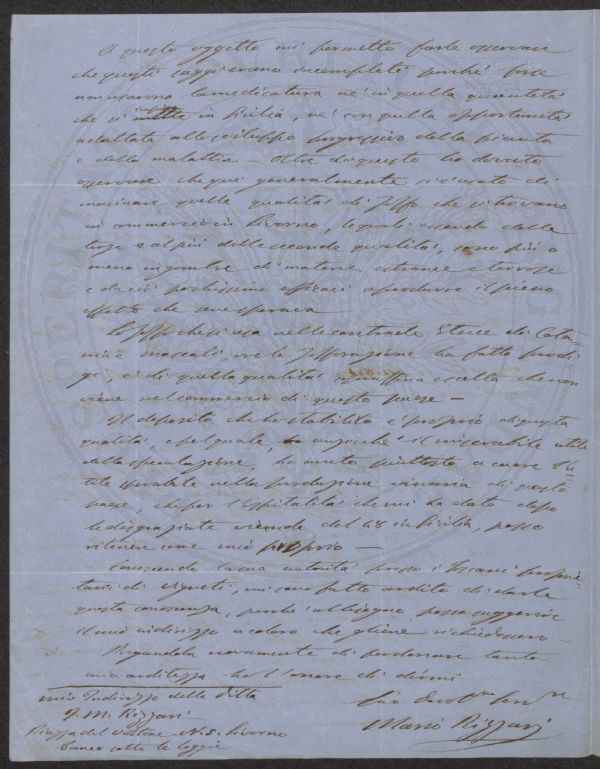 A questo oggetto mi permetto farle osservare
che questi saggi erano incompleti perché forse
non usarono la medicatura né in quella quantità
che si in Sicilia, né con quella opportunità
adattata allo sviluppo progressivo della pianta
e della malattia — Oltre di questo ho dovuto
osservare che qui generalmente si è usato di
macinare quelle qualità di Zolfo che si trovano
in commercio in Livorno, le quali essendo della
terza e al più della seconda qualità, sono più o
meno ingombre di materie estranee e terrose
e da ciò pochissimo efficaci a produrre il pieno
effetto che se ne sperava
Lo Zolfo che si usa nelle contrade Etnee di Cata-
nia e Mascali, ove la Zolforazione ha fatto prodi-
gi, è di quella qualità scelta che non
viene nel commercio di questo paese —
Il deposito che ho stabilito è proprio di questa
qualità e pel quale, anziché il miserabile utile
della speculazione, ho avuto piuttosto a cuore l'u-
tile sperabile nella produzione vinaria di questo
paese, che per l'Ospitalità che mi ha dato dopo
le disgraziate vicende del 48 in Sicilia, posso
ritenere come mio proprio —
Conoscendo la sua autorità presso i Toscani proprie-
tari di vigneti, mi sono fatto ardito di darle
questa conoscenza, perché al bisogno possa suggerire
il mio indirizzo a coloro che gliene richiedessero —
Pregandola nuovamente di perdonare tanta
mia arditezza ho l'onore di dirmi
Suo Devot.mo Ser.re
Mario Rizzari
mio Indirizzo della Ditta
M. Rizzari
Piazza del N. 5. Livorno
banco sotto le loggie